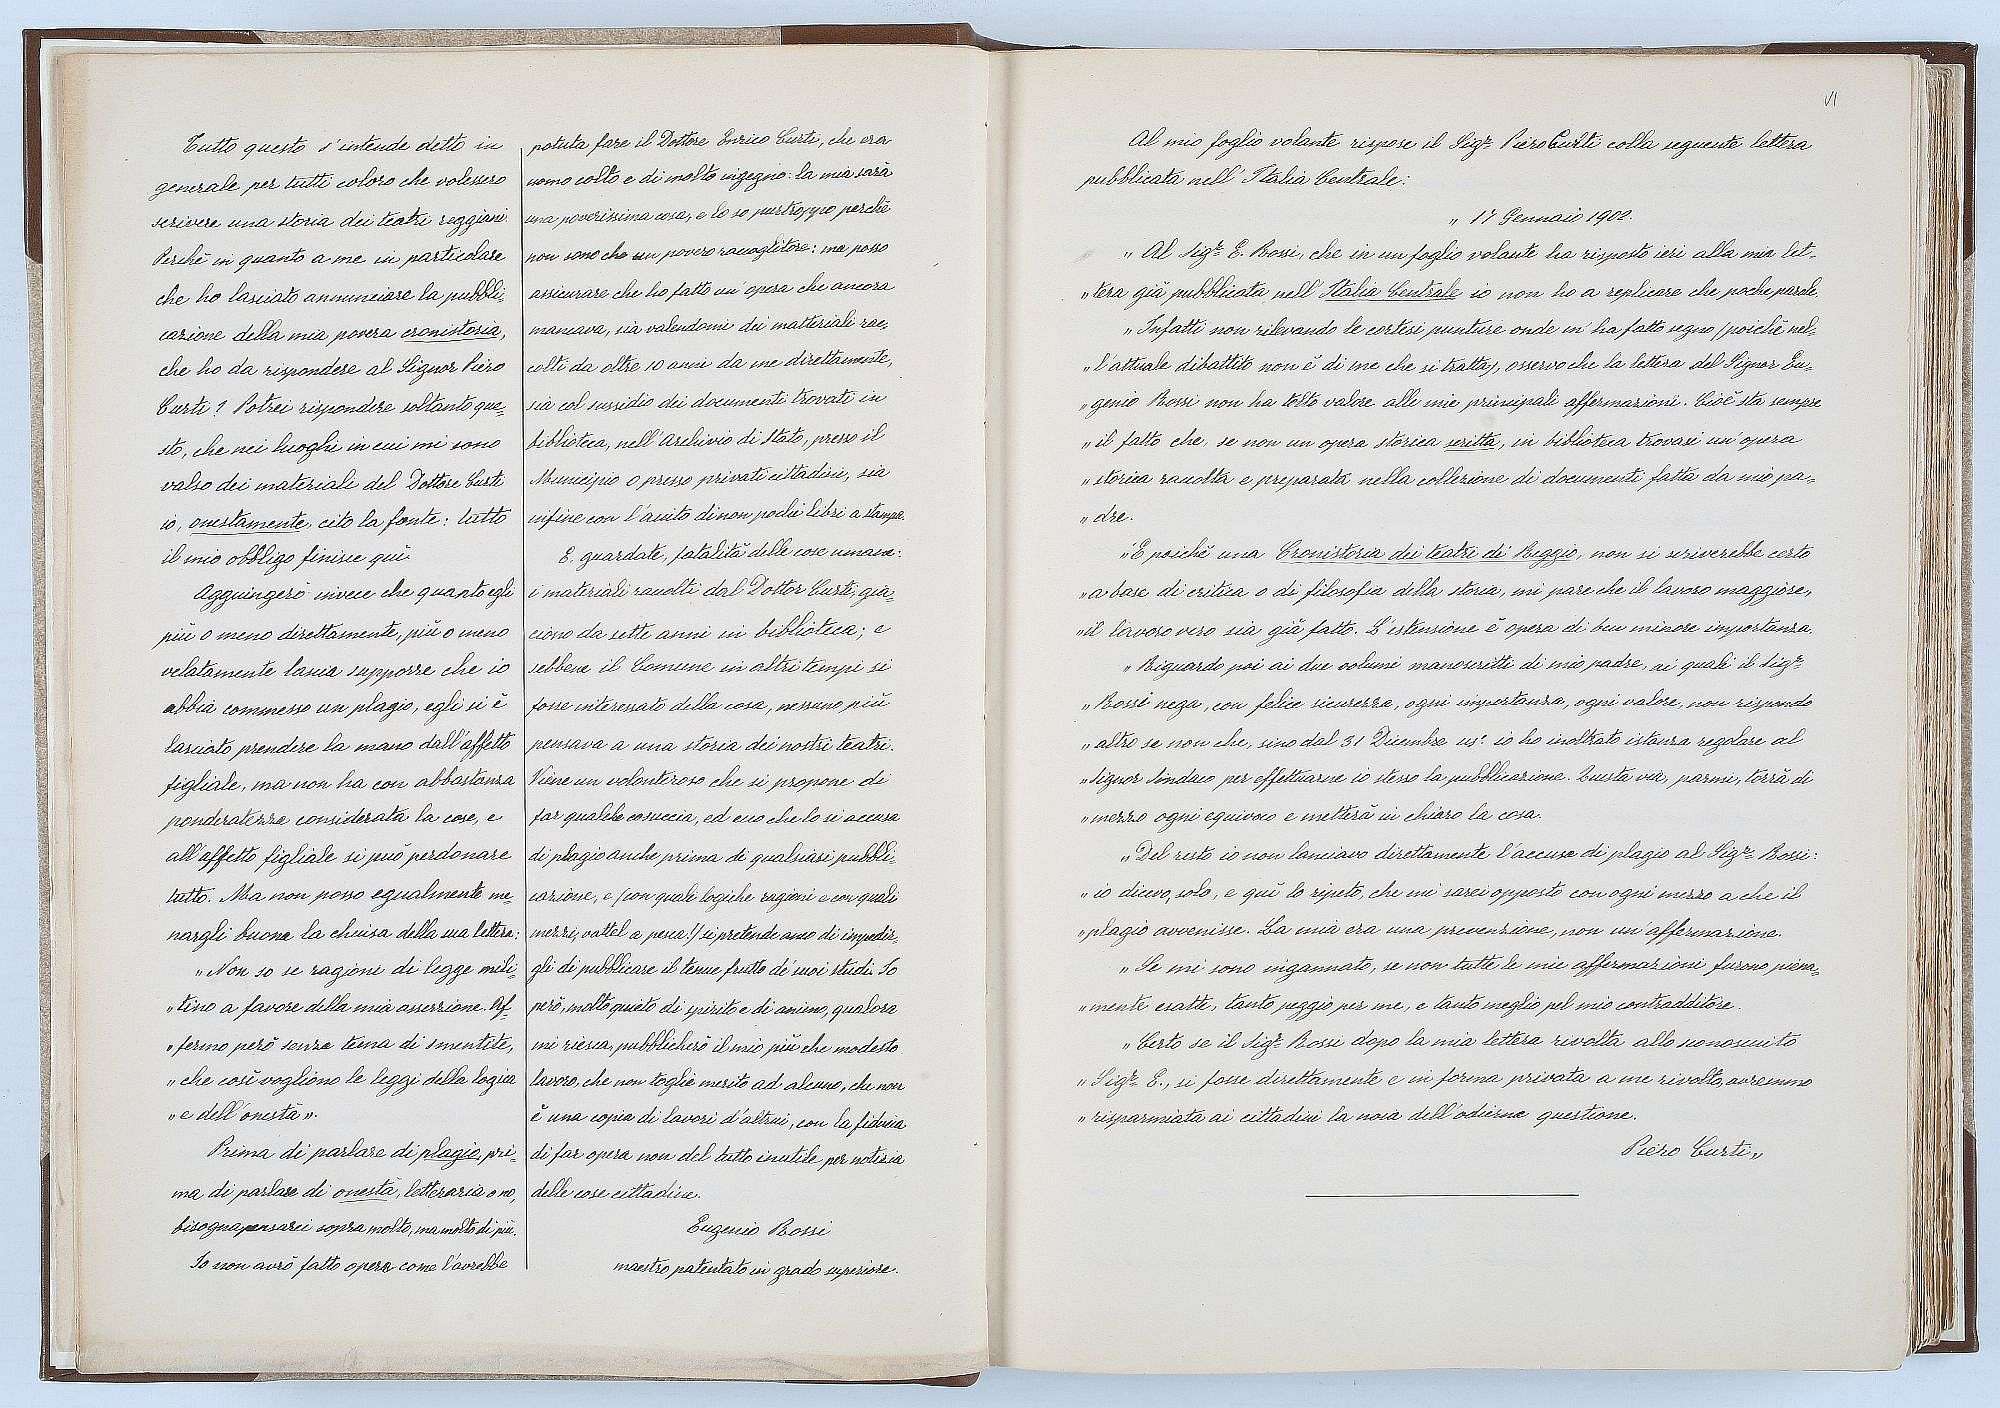 Tutto questo s'intende detto in
generale per tutti coloro che volessero
scrivere una storia dei teatri reggiani.
Perchè in quanto a me in particolare
che ho lasciato annunciare la pubbli-
cazione della mia povera cronistoria,
che ho da rispondere al Signor Piero
Curti? Potrei rispondere soltanto que-
sto, che nei luoghi in cui mi sono
valso dei materiali del Dottore Curti
io, onestamente, cito la fonte: tutto
il mio obbligo finisce quì.
Aggiungerò invece che quanto egli
più o meno direttamente, più o meno
velatamente lascia supporre che io
abbia commesso un plagio, egli si è
lasciato prendere la mano dall'affetto
figliale, ma non ha con abbastanza
ponderatezza considerata la cose, e
all'affetto figliale si può perdonare
tutto. Ma non posso egualmente me-
nargli buona la chiusa della sua lettera:
„Non so se ragioni di legge mili-
„tino a favore della mia asserzione. Af-
„fermo però senza tema di smentite,
„che così vogliono le leggi della logica
„e dell'onestà„.
Prima di parlare di plagio, pri-
ma di parlare di onestà, letteraria o no,
bisogna pensarci sopra molto, ma molto di più.
Io non avrò fatto opera come l'avrebbe
potuta fare il Dottore Enrico Curti, che era
uomo colto e di molto ingegno: la mia sarà
una poverissima cosa, e lo so purtroppo perchè
non sono che un povero raccoglitore: ma posso
assicurare che ho fatto un'opera che ancora
mancava, sia valendomi dei matteriale rac-
colti da oltre 10 anni da me direttamente,
sia col sussidio dei documenti trovati in
biblioteca, nell'Archivio di Stato, presso il
Municipio o presso privati cittadini, sia
infine con l'aiuto di non pochi libri a stampa.
E, guardate, fatalità delle cose umane:
i materiali raccolti dal Dottor Curti, gia-
ciono da sette anni in biblioteca; e
sebbene il Comune in altri tempi si
fosse interessato della cosa, nessuno più
pensava a una storia dei nostri teatri.
Viene un volonteroso che si propone di
far qualche cosuccia, ed ecco che lo si accusa
di plagio anche prima di qualsiasi pubbli-
cazione, e (con quali logiche ragioni e con quali
mezzi, vattel a pesca!) si pretende anco di impedir-
gli di pubblicare il tenue frutto de' suoi studi. Io
però, molto quieto di spirito e di animo, qualora
mi riesca, pubblicherò il mio più che modesto
lavoro, che non toglie merito ad alcuno, che non
è una copia di lavori d'altrui, con la fiducia
di far opera non del tutto inutile per notizia
delle cose cittadine.
Eugenio Rossi
maestro patentato in grado superiore.
VI
Al mio foglio volante rispose il Sigr. Piero Curti colla seguente lettera
pubblicata nell'Italia Centrale:
„ 17 Gennaio 1902.
„Al Sigr. E. Rossi, che in un foglio volante ha risposto ieri alla mia let-
„tera già pubblicata nell'Italia Centrale io non ho a replicare che poche parole.
„Infatti non rilevando le cortesi punture onde m'ha fatto segno (poichè nel-
„l'attuale dibattito non è di me che si tratta), osservo che la lettera del Signor Eu-
„genio Rossi non ha tolto valore alle mie principali affermazioni. Cioè sta sempre
„il fatto che, se non un opera storica scritta, in biblioteca trovasi un'opera
„storica raccolta e preparata nella collezione di documenti fatta da mio pa-
„dre.
„E poichè una Cronistoria dei teatri di Reggio, non si scriverebbe certo
„a base di critica o di filosofia della storia, mi pare che il lavoro maggiore,
„il lavoro vero sia già fatto. L'estensione è opera di ben minore importanza.
„Riguardo poi ai due volumi manoscritti di mio padre, ai quali il Sigr.
„Rossi nega, con felice sicurezza, ogni importanza, ogni valore, non rispondo
„altro se non che, sino dal 31 Dicembre us. io ho inoltrato istanza regolare al
„Signor Sindaco per effettuarne io stesso la pubblicazione. Questa via, parmi, torrà di
„mezzo ogni equivoco e metterà in chiaro la cosa.
„Del resto io non lanciavo direttamente l'accusa di plagio al Sigr. Rossi:
„io dicevo, solo, e quì lo ripeto, che mi sarei opposto con ogni mezzo a che il
„plagio avvenisse. La mia era una prevenzione, non un'affermazione.
„Se mi sono ingannato, se non tutte le mie affermazioni furono piena-
„mente esatte, tanto peggio per me, e tanto meglio pel mio contradditore.
„Certo se il Sigr. Rossi dopo la mia lettera rivolta allo sconosciuto
„Sigr. E., si fosse direttamente e in forma privata a me rivolto, avremmo
„risparmiata ai cittadini la noia dell'odierna questione.
Piero Curti„